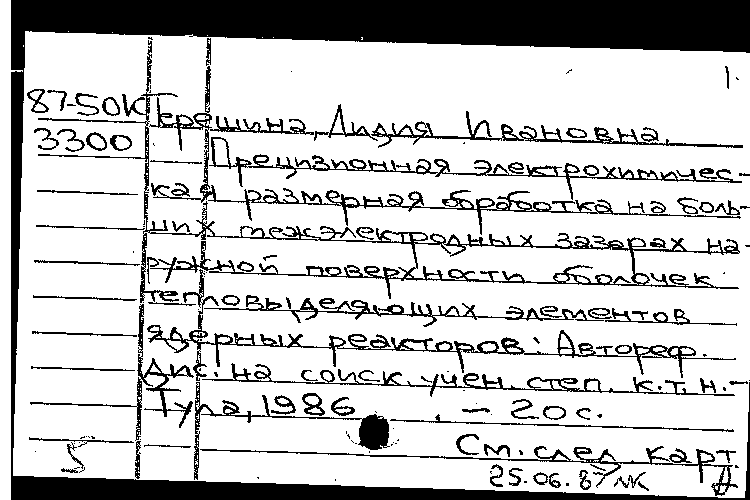 1.
87-50К Терешина, Лидия Ивановна.
3300 Прецизионная электрохимичес-
кая размерная обработка на боль-
ших межэлектродных зазорах на-
ружной поверхности оболочек
тепловыделяющих элементов
ядерных реакторов: Автореф.
дис. на соиск. учен. степ. к.т.н. -
Тула, 1986 . - 20 с.
См. след. карт.
5 25.06.87